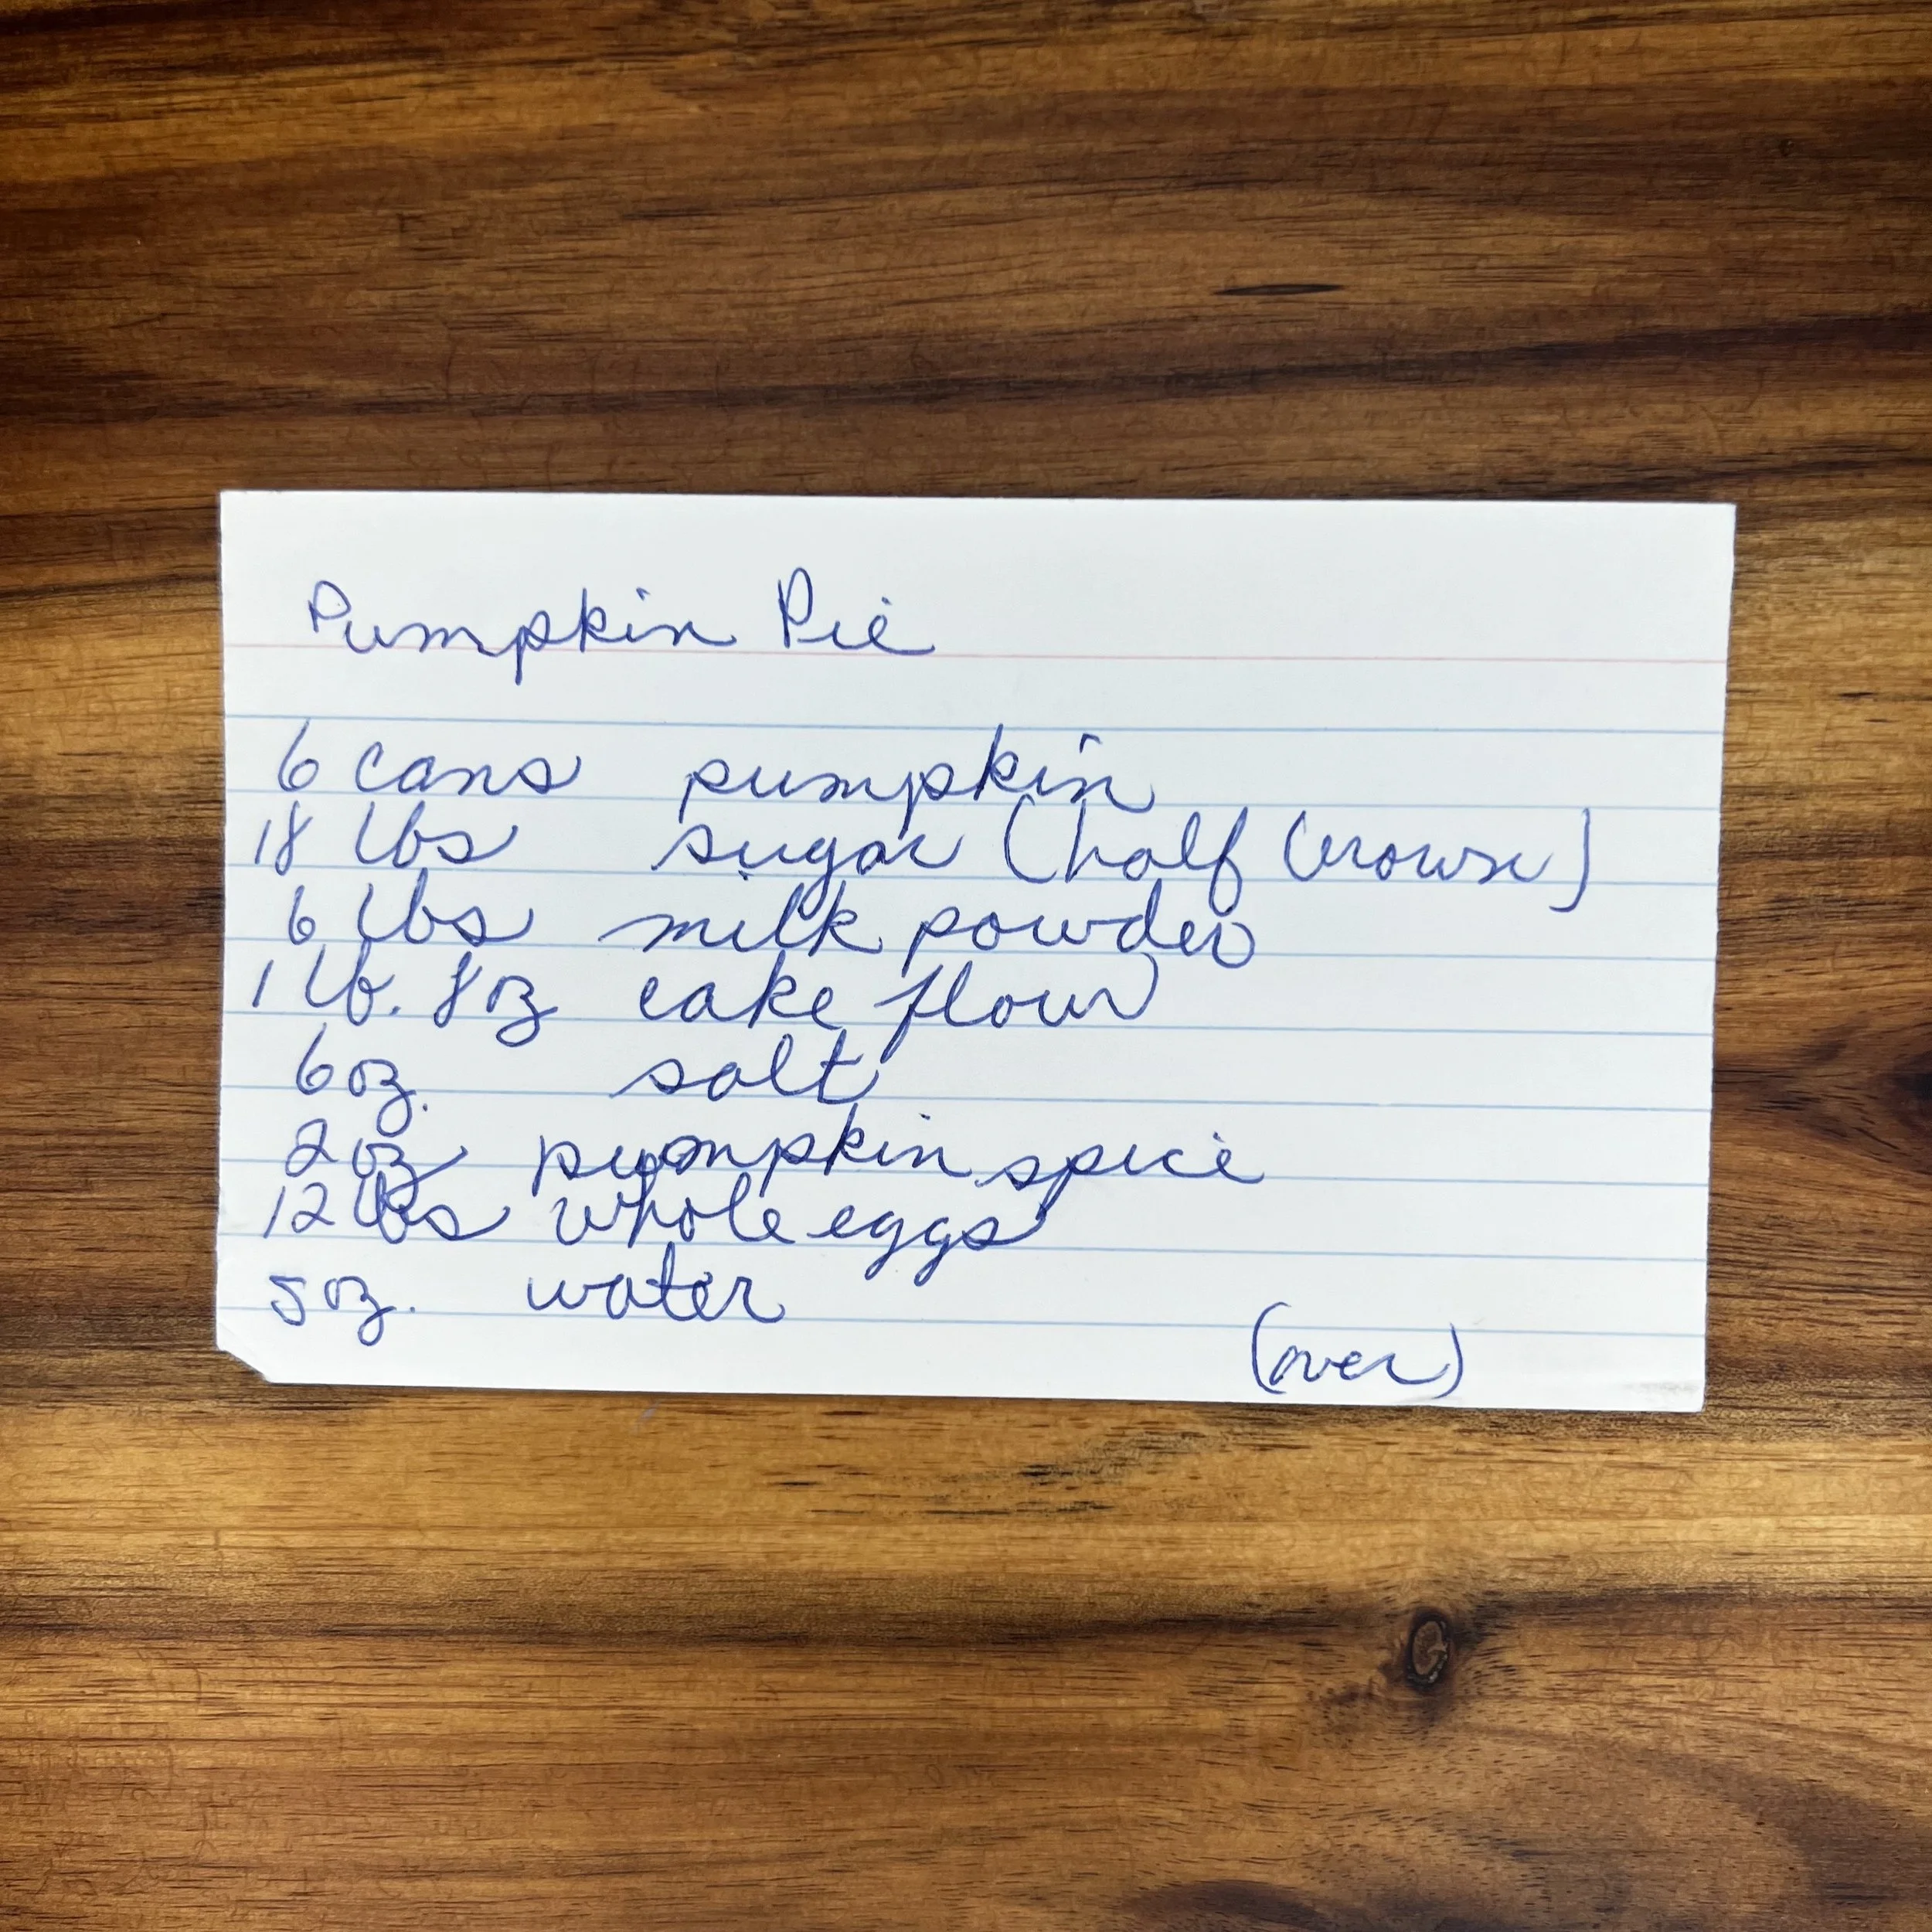 Pumpkin Pie
6 cans pumpkin
18 lbs sugar (half brown)
6 lbs milk powder
1 lb. 8 oz cake flour
6 oz. salt
2 oz pumpkin spice
12 lbs whole eggs
5 oz. water
(over)